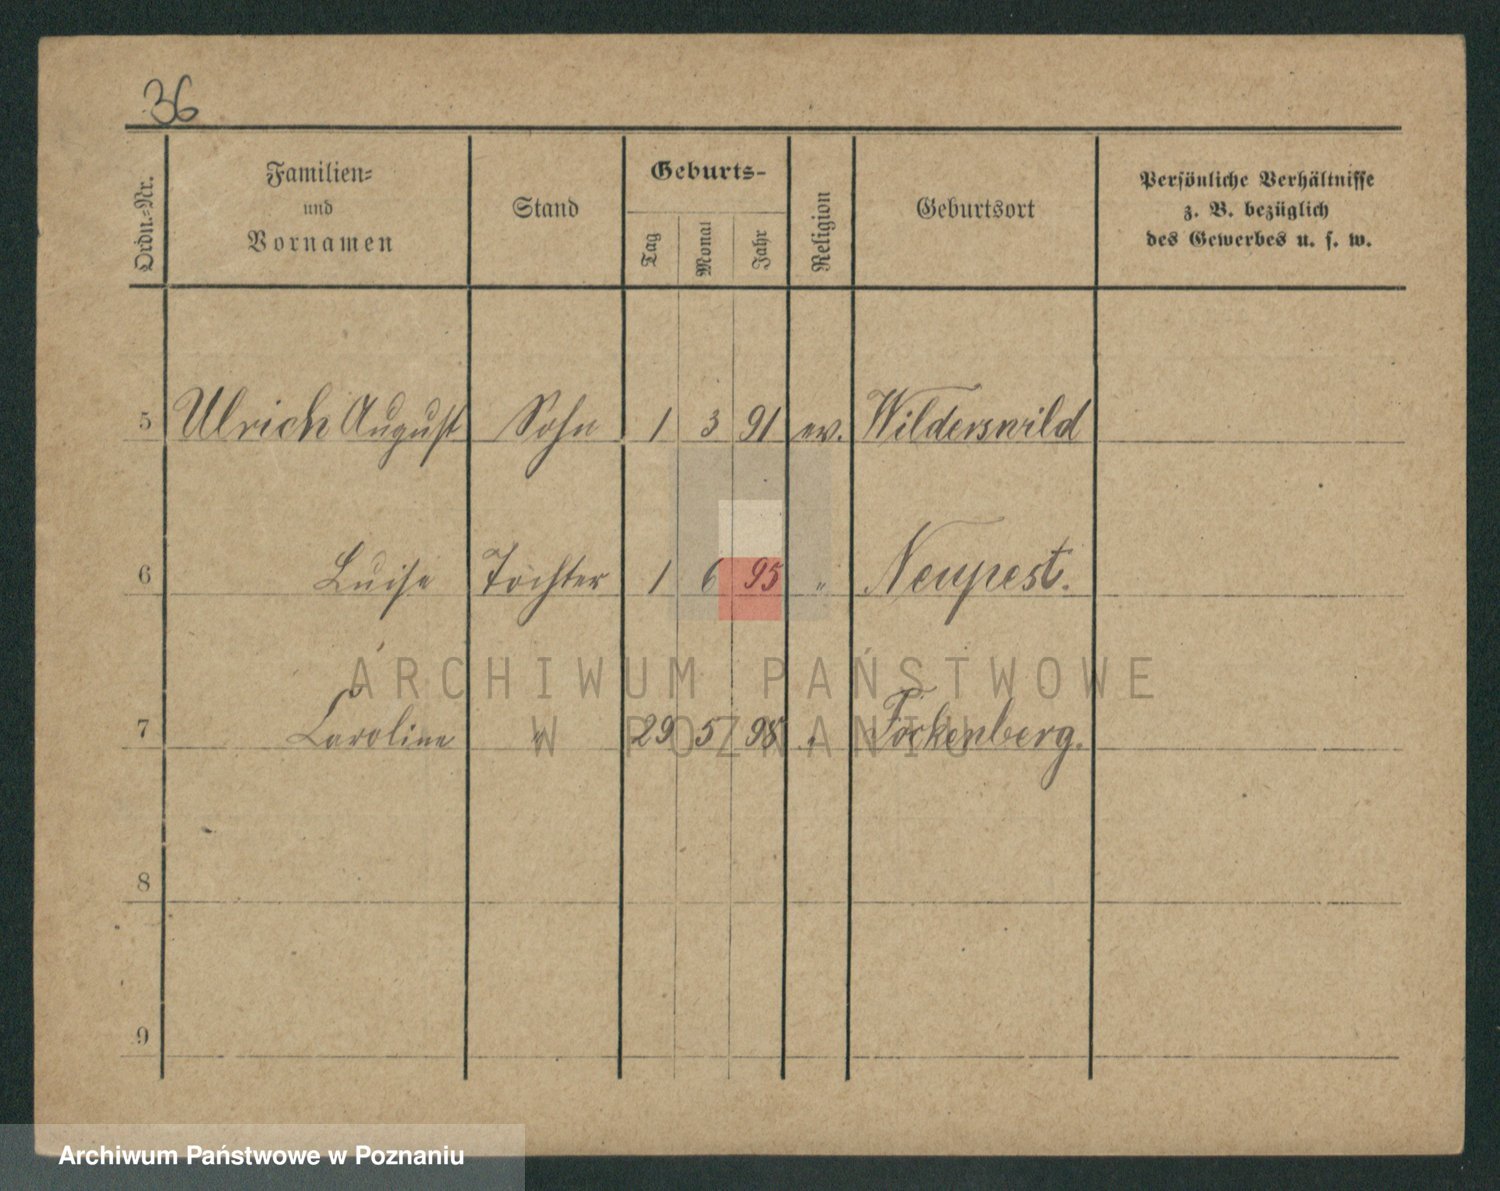 36
Ordn.-Nr. Familien- und Vornamen Stand Geburts- Tag Monat Jahr Religion Geburtsort Persönliche Verhältnisse z. B. bezüglich des Gewerbes u. s. w.
5 Ulrich August Sohn 1 3 91 ev. Wilderswild
6 Luise Tochter 1 6 95 " Neupest.
ARCHIWUM PAŃSTWOWE
W POZNANIU
7 Caroline " 29 5 98 " Fockenberg.
8
9
Archiwum Państwowe w Poznaniu